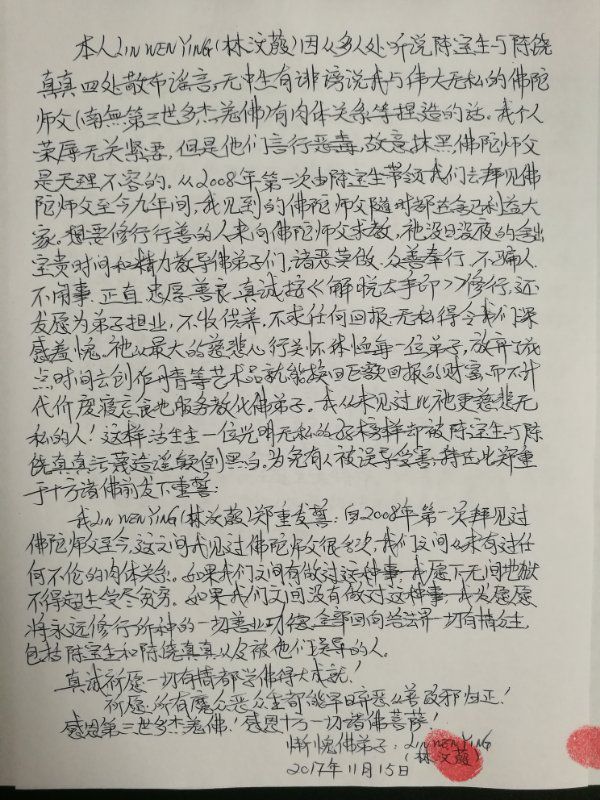 本人LIN WEN YING(林汶薇)因从多人处听说陈宝生与陈饶
真真四处散布谣言,无中生有诽谤说我与伟大无私的佛陀
师父(南無第三世多杰羌佛)有肉体关系等捏造的话。我个人
荣辱无关紧要,但是他们言行恶毒,故意抹黑佛陀师父
是天理不容的。从2008年第一次由陈宝生带领我们去拜见佛
陀师父至今九年间,我见到的佛陀师父随时都在舍己利益大
家。想要修行行善的人来向佛陀师父求教,祂没日没夜的拿出
宝贵时间和精力教导佛弟子们,诸恶莫做、众善奉行、不骗人、
不闹事、正直、忠厚、善良、真诚按《解脱大手印》修行,还
发愿为弟子担业,不收供养,不求任何回报,无私得令我们深
感羞愧。祂以最大的慈悲心行关怀体恤每一位弟子,放弃了花
点时间去创作丹青等艺术品就能换回巨额回报的财富,而不计
代价废寝忘食地服务教化佛弟子。我从未见过比祂更慈悲无
私的人!这样活生生一位光明无私的好榜样却被陈宝生与陈
饶真真污蔑造谣颠倒黑白。为免有人被误导受害,特在此郑重
于十方诸佛前发下重誓:
我LIN WEN YING(林汶薇)郑重发誓:自2008年第一次拜见过
佛陀师父至今,这之间我见过佛陀师父很多次,我们之间从未有过任
何不伦的肉体关系。如果我们之间有做过这种事,我愿下无间地狱
不得超生受尽贫穷。如果我们之间没有做过这种事,我发愿愿
将永远修行所种的一切善业功德,全部回向给法界一切有情众生,
包括陈宝生和陈饶真真以及被他们误导的人。
真诚祈愿一切有情都学佛得大成就!
祈愿所有魔众恶众生都能早日弃恶从善改邪归正!
感恩第三世多杰羌佛!感恩十方一切诸佛菩萨!
惭愧佛弟子:LIN WEN YING
(林汶薇)
2017年11月15日